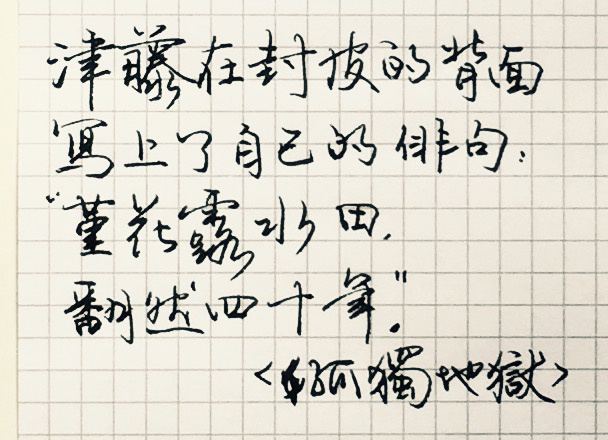 津藤在封皮的背面
寫上了自己的俳句：
“堇花露水田，
翻然四十年”。
<孤獨地獄>